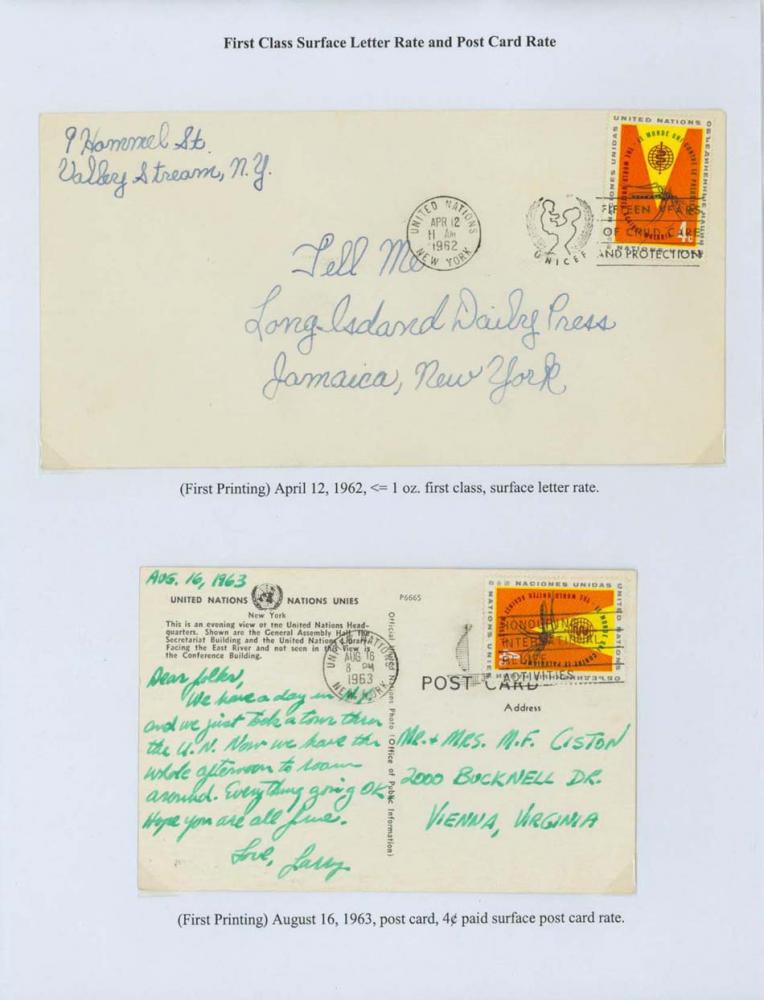 First Class Surface Letter Rate and Post Card Rate
9 Hammel St.
Valley Stream, N.Y.
UNITED NATIONS
NACIONES UNIDAS
ОБЪЕДИНЕННЫЕ НАЦИИ
LE MONDE UNI CONTRE LE PALUDISME
THE WORLD UNITED AGAINST MALARIA
4c
UNITED NATIONS
APR 12
11 AM
1962
NEW YORK
UNICEF
FIFTEEN YEARS
OF CHILD CARE
AND PROTECTION
Tell Me
Long Island Daily Press
Jamaica, New York
(First Printing) April 12, 1962, <= 1 oz. first class, surface letter rate.
AUG. 16, 1963
UNITED NATIONS NATIONS UNIES
New York
This is an evening view of the United Nations Head-
quarters. Shown are the General Assembly Hall, the
Secretariat Building and the United Nations Library.
Facing the East River and not seen in this view is
the Conference Building.
P6665
Official United Nations Photo (Office of Public Information)
UNITED NATIONS
AUG 16
8 PM
1963
NEW YORK
NACIONES UNIDAS
UNITED NATIONS
NATIONS UNIES
HONOURING
INTERNATIONAL
RELIEF
ACTIVITIES
POST CARD
Address
Dear folks,
We have a day in N.Y.
and we just took a tour thru
the U.N. Now we have the
whole afternoon to roam
around. Everything going OK
Hope you are all fine.
Love, Larry
MR. + MRS. M.F. CISTON
2000 BUCKNELL DR.
VIENNA, VIRGINIA
(First Printing) August 16, 1963, post card, 4¢ paid surface post card rate.